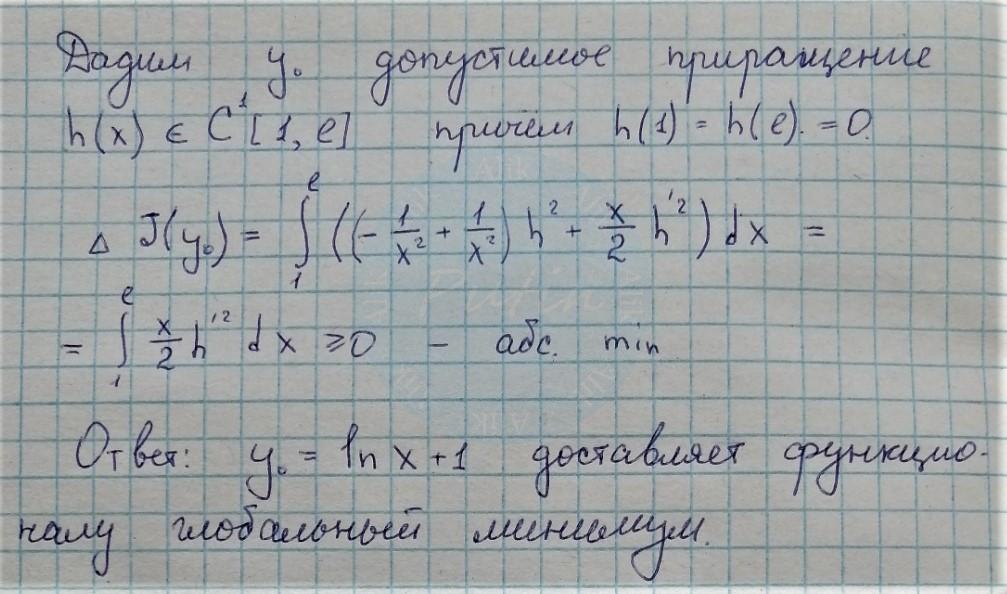 Дадим y₀ допустимое приращение
h(x) ∈ C¹[1, e] причём h(1) = h(e) = 0.
Δ J(y₀) = ∫₁ᵉ ((-1/x² + 1/x²) h² + x/2 h'²) dx =
= ∫₁ᵉ x/2 h'² dx ≥ 0 – абс. min
Ответ: y₀ = ln x + 1 доставляет функцио-
налу глобальный минимум.